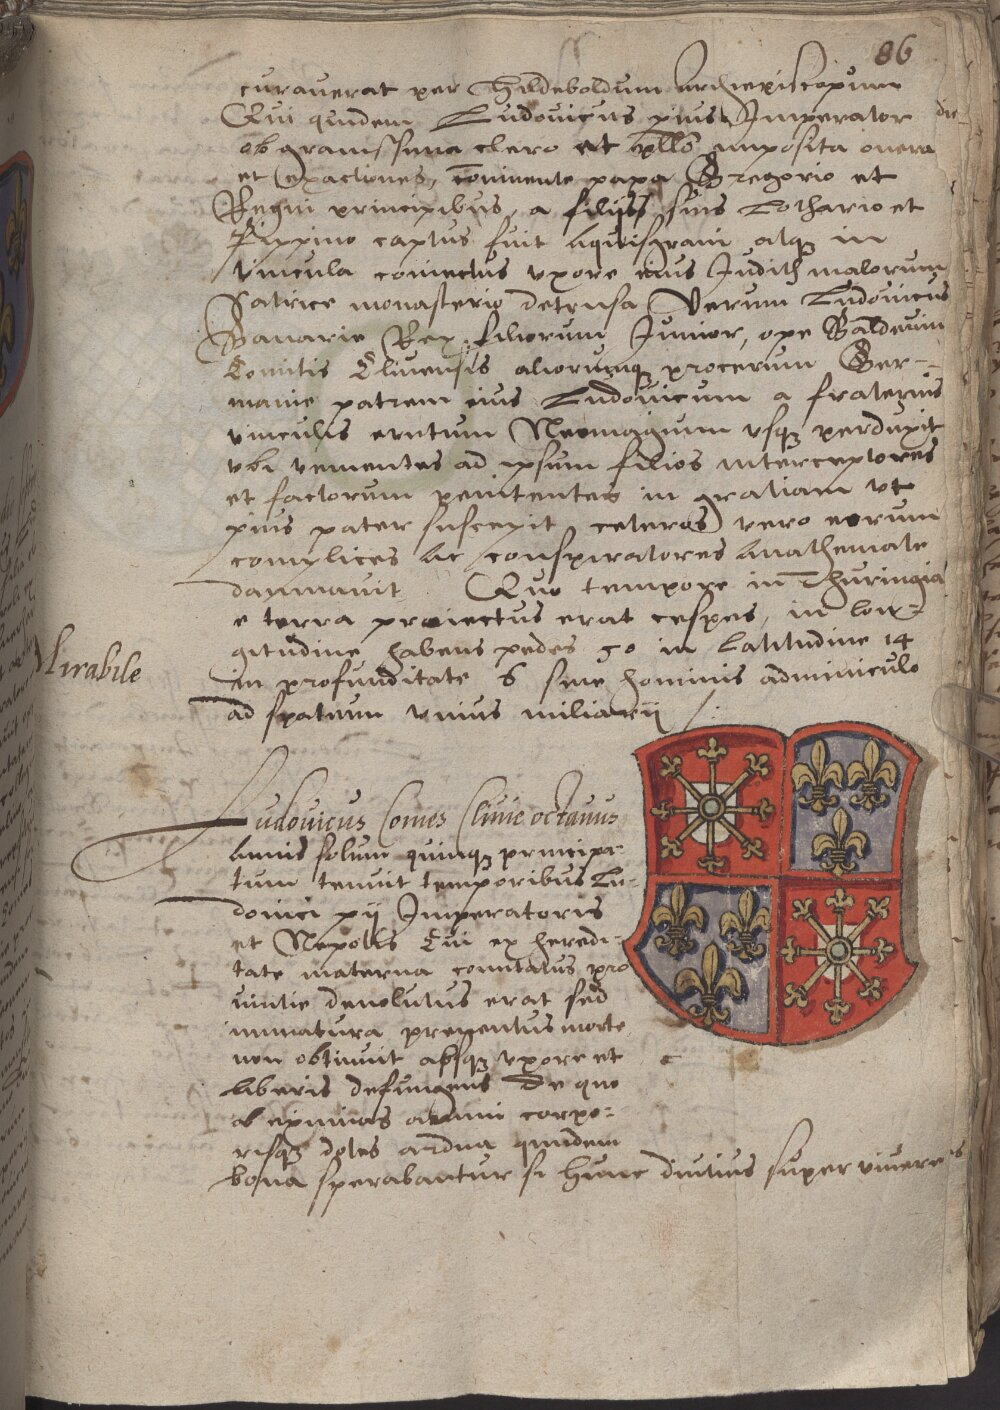 86
curauerat per Hildeboldum archiepiscopum
Qui quidem Ludouicus pius Imperator
ob grauissima clero et imposita onera
et exactiones, papa Gregorio et
Regni principibus, a filijs suis Lothario et
Pippino captus fuit atqz in
vincula coniectus vxore eius Judith malorum
Satrice monasterio detrusa Verum Ludouicus
Bauarie Rex filiorum Junior, ope Baldeuini
Comitis Cliuensis aliorumqz procerum Ger-
manie patrem eius Ludouicum a fraternis
vinculis erutum Neomagium vsqz perduxit
vbi venientes ad ipsum filios interceptores
et factorum penitentes in gratiam vt
pius pater suscepit, ceteros vero eorum
complices ac conspiratores anathemate
damnauit Quo tempore in Thuringia
e terra proiectus erat cespes, in lon-
gitudine habens pedes 50 in Latitudine 14
in profunditate 6 sine hominis adminiculo
ad spatium vnius miliarij
Mirabile
Ludouicus Comes Cliuie octauus
annis solum quinqz principa-
tum tenuit temporibus Lu-
douici pij Imperatoris
et Nepotis Cui ex heredi-
tate materna comitatus pro
uintie deuolutus erat sed
immatura preuentus morte
non obtinuit absqz vxore et
liberis defungens De quo
ob eximias animi corpo-
risqz dotes ardua quidem
bona sperabantur si hunc diutius super viuere